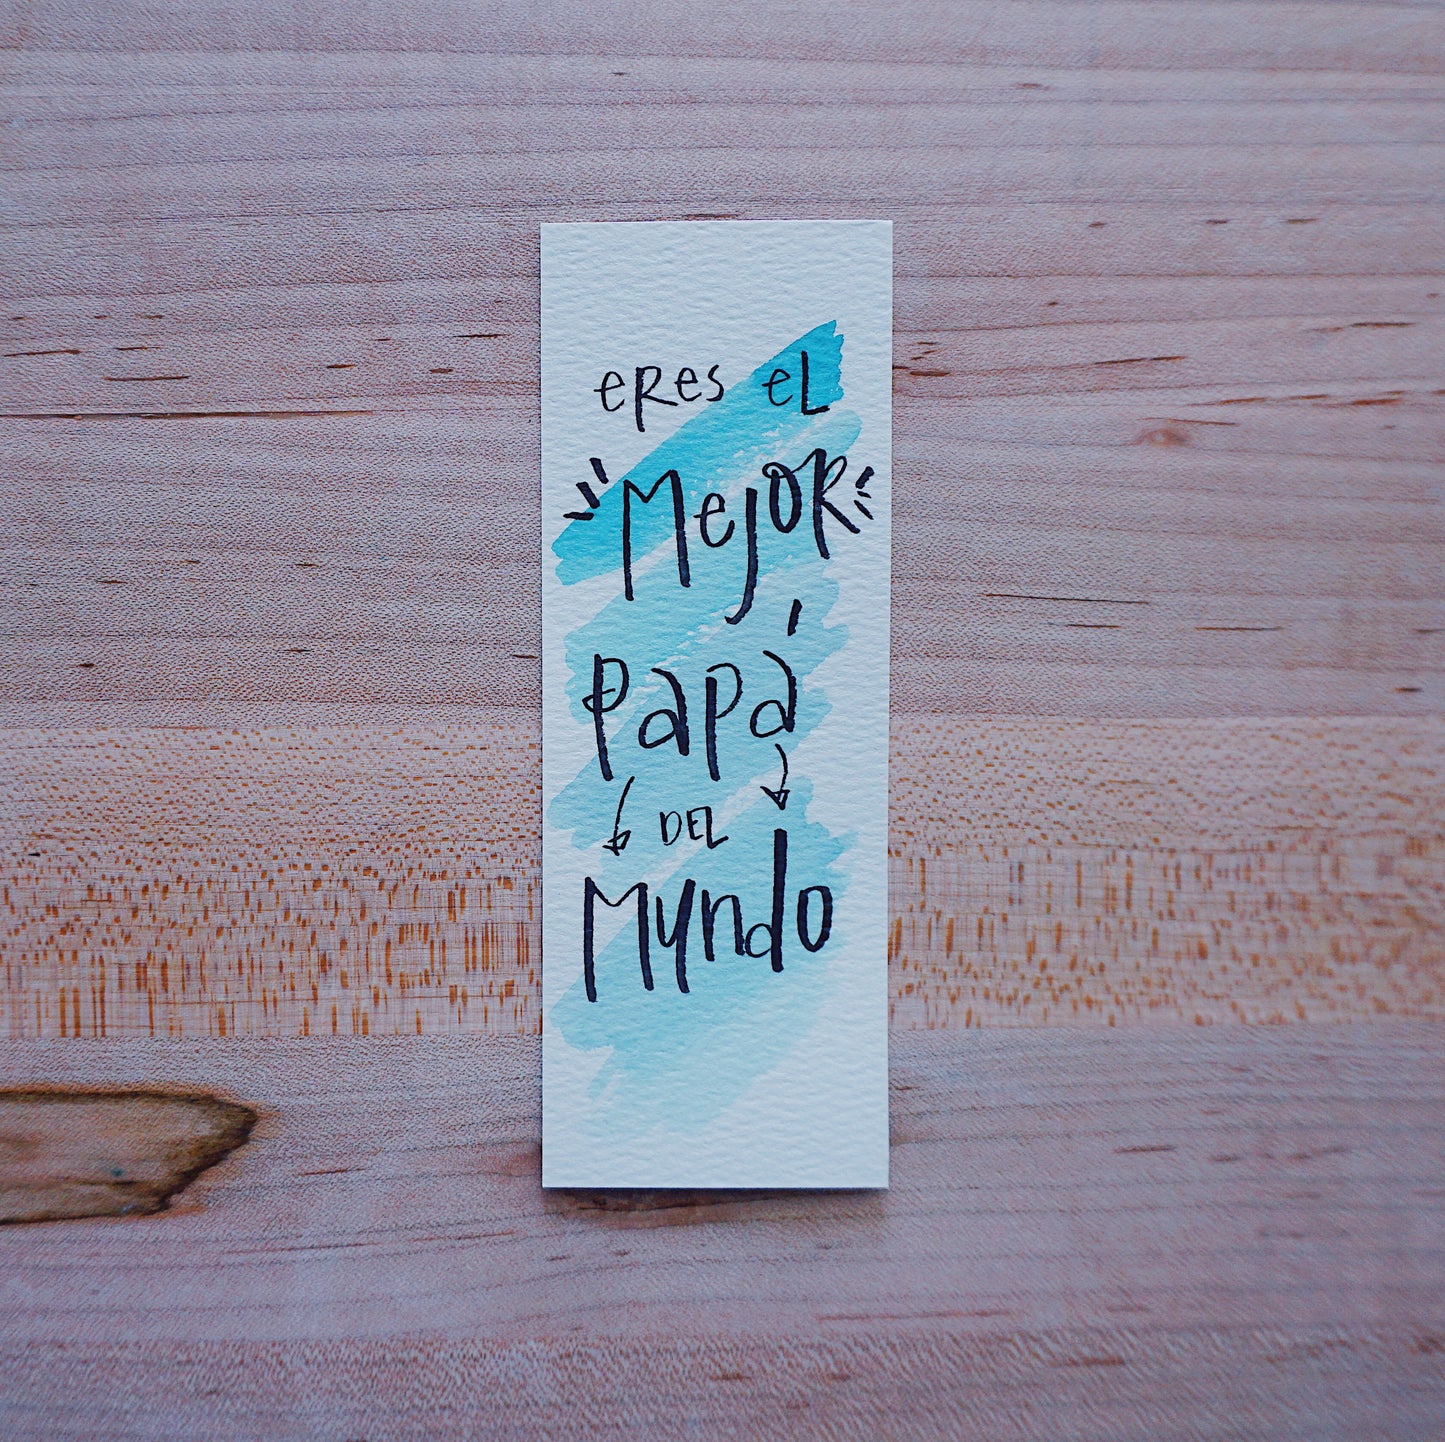 eres el
Mejor
Papá
DEL
Mundo